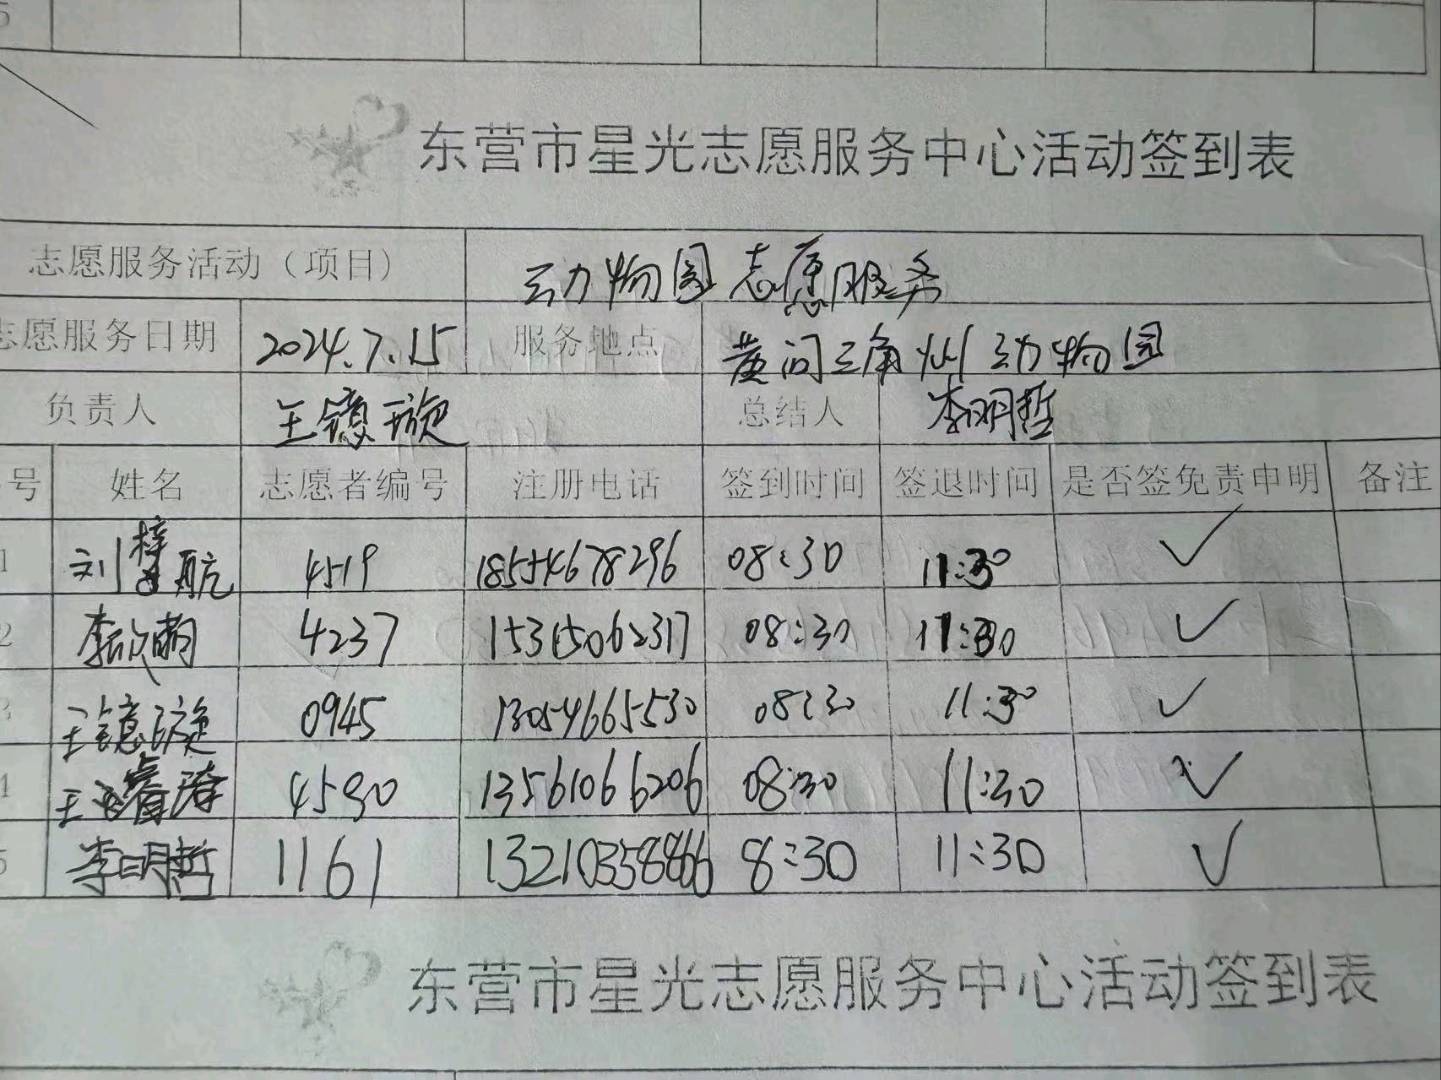 5
东营市星光志愿服务中心活动签到表
志愿服务活动（项目） 动物园志愿服务
志愿服务日期 2024.7.15 服务地点 黄河三角州动物园
负责人 王镱璇 总结人 李明哲
号 姓名 志愿者编号 注册电话 签到时间 签退时间 是否签免责申明 备注
1 刘梓航 4519 18554678296 08:30 11:30 ✓
2 李欣萌 4237 15315062317 08:30 11:30 ✓
3 王镱璇 0945 13054665530 08:30 11:30 ✓
4 王睿 4590 13561066206 08:30 11:30 ✓
5 李明哲 1161 13210358866 8:30 11:30 ✓
东营市星光志愿服务中心活动签到表